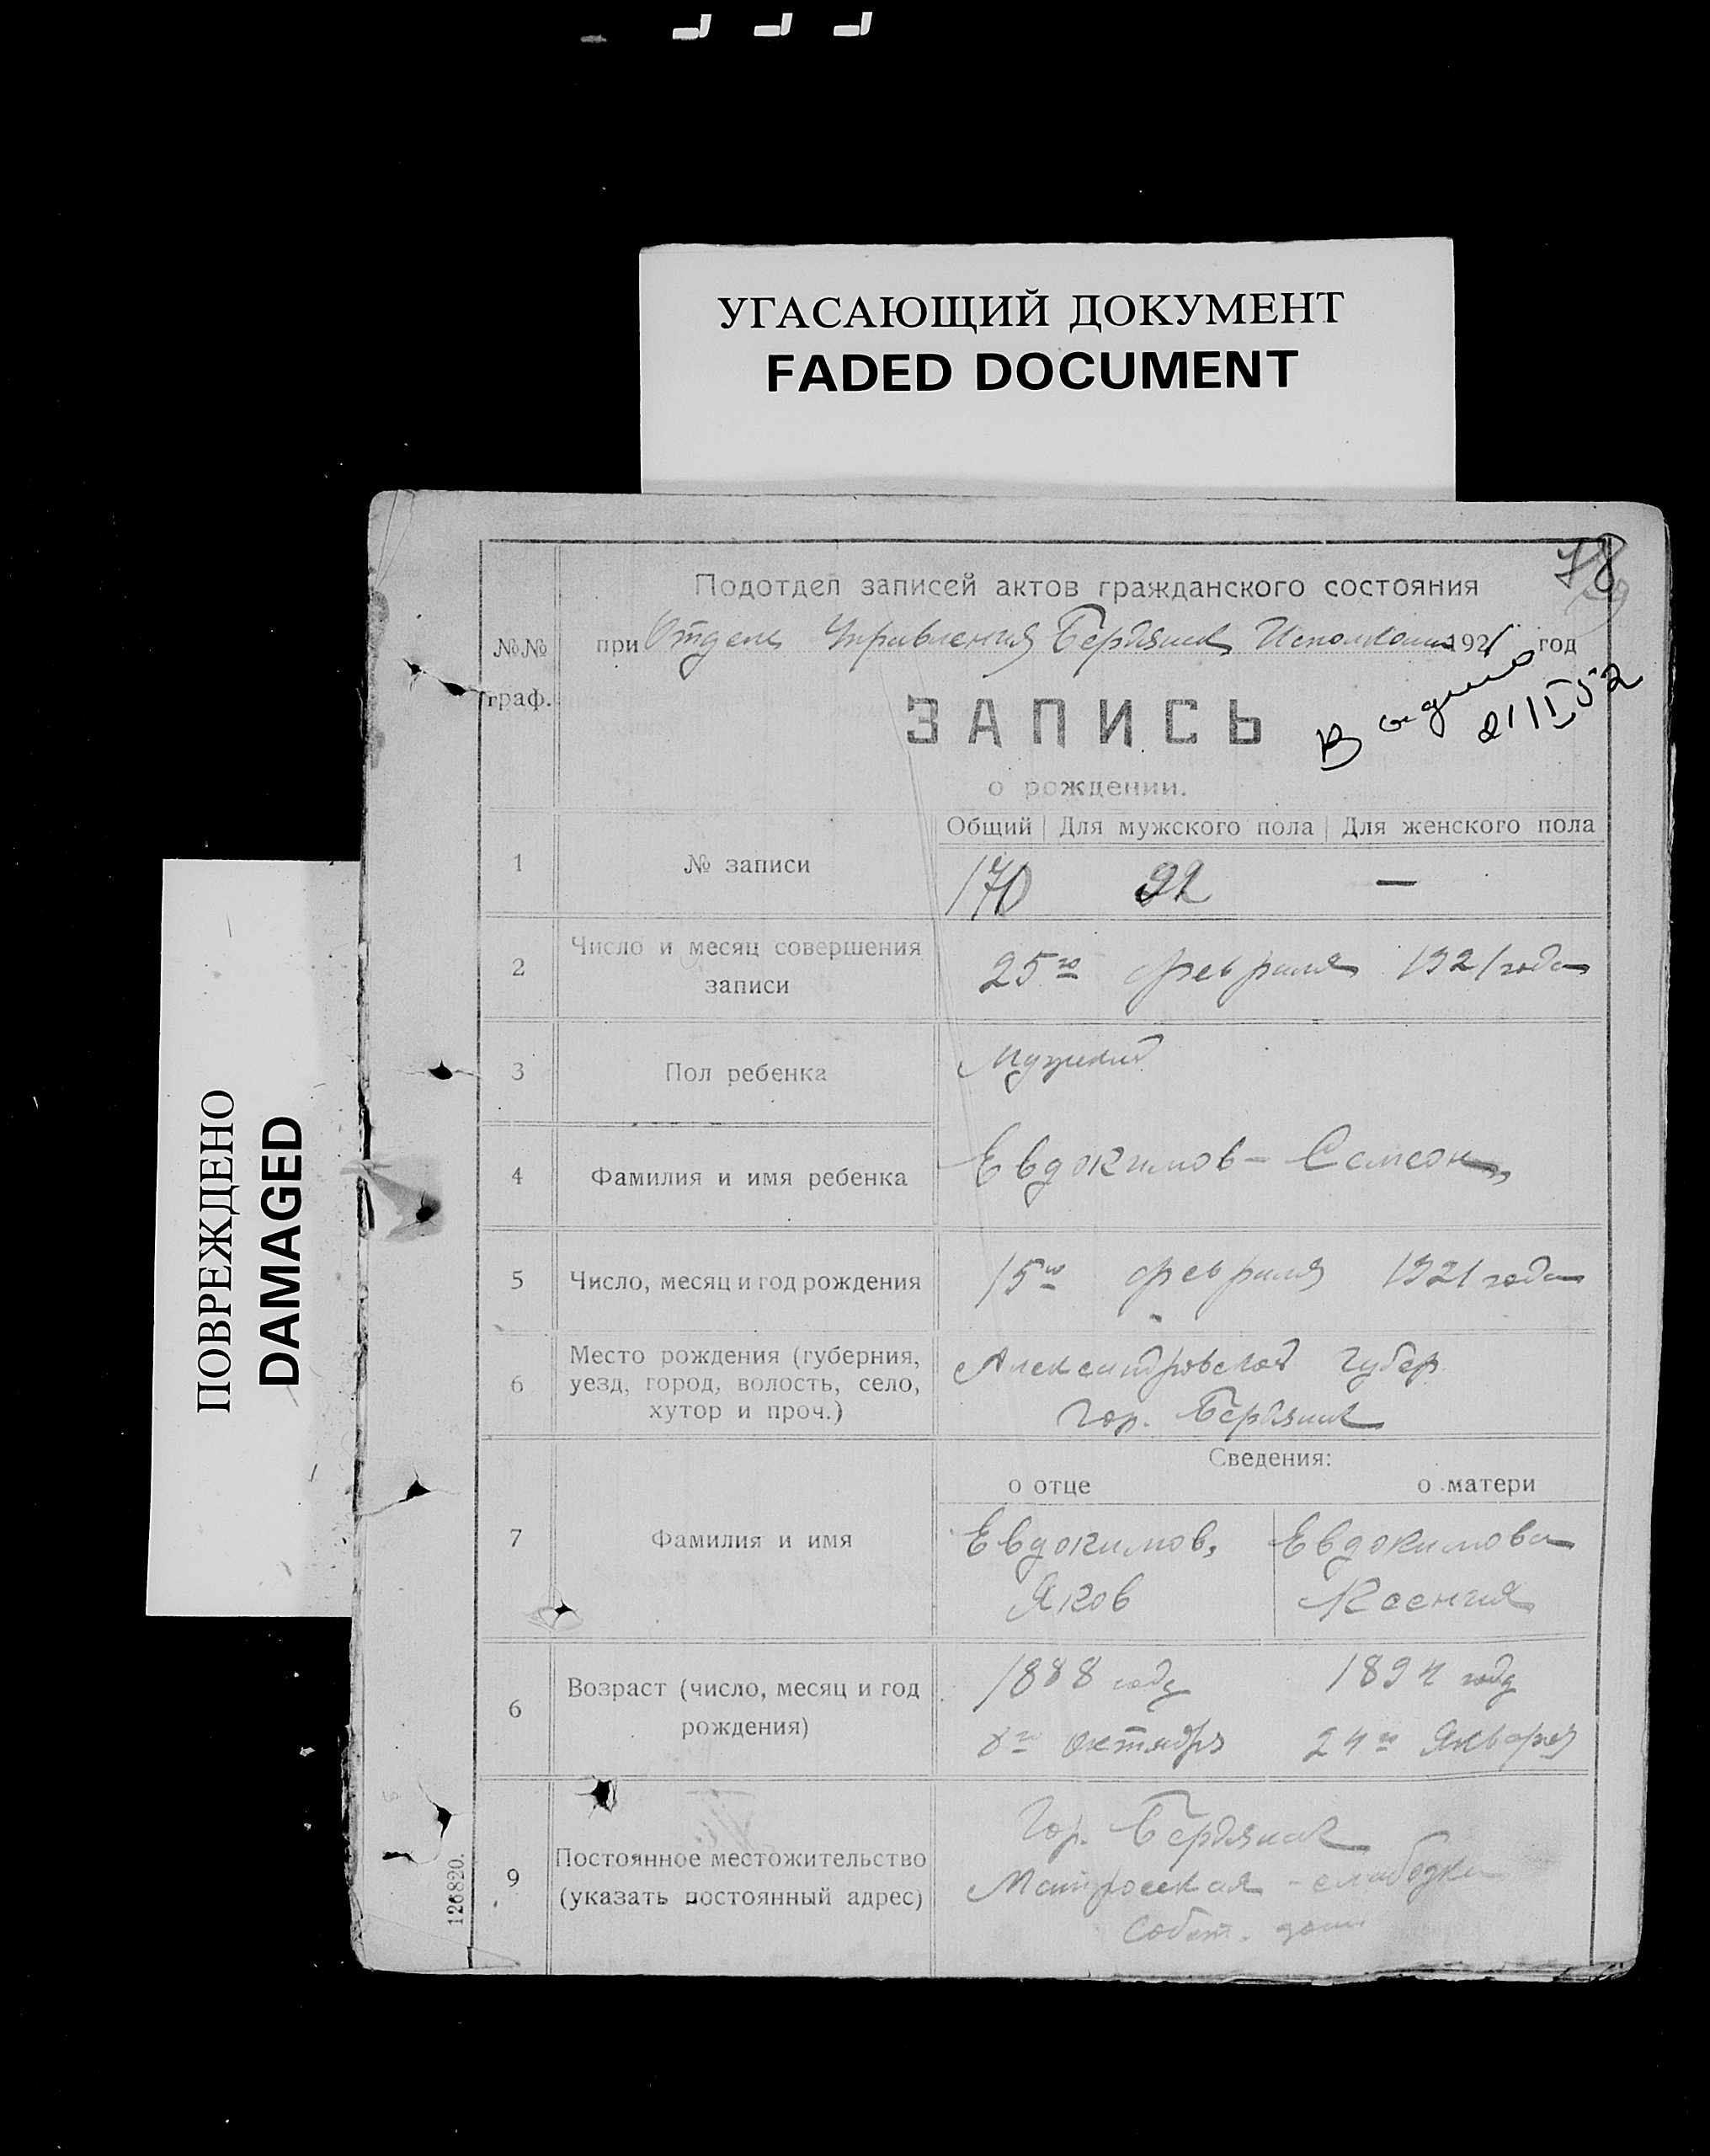 УГАСАЮЩИЙ ДОКУМЕНТ
FADED DOCUMENT
ПОВРЕЖДЕНО
DAMAGED
78
Подотдел записей актов гражданского состояния
№№ граф.
при Отделе Управления Бердянск Исполкома 1921 год
ЗАПИСЬ
21/I 52
о рождении.
Общий Для мужского пола Для женского пола
1 № записи 170 92 —
2 Число и месяц совершения записи 25го февраля 1921 года
3 Пол ребенка Мужский
4 Фамилия и имя ребенка Евдокимов - Самсон,
5 Число, месяц и год рождения 15го февраля 1921 года
6 Место рождения (губерния,
уезд, город, волость, село,
хутор и проч.)
Александровской губер.
гор. Бердянск
Сведения:
о отце о матери
7 Фамилия и имя
Евдокимов, Евдокимова
Яков Ксения
6 Возраст (число, месяц и год
рождения)
1888 году 1894 году
8го октября 24го Января
9 Постоянное местожительство
(указать постоянный адрес)
Гор. Бердянск
Матросская - слабодка
Собст. дом
126820.